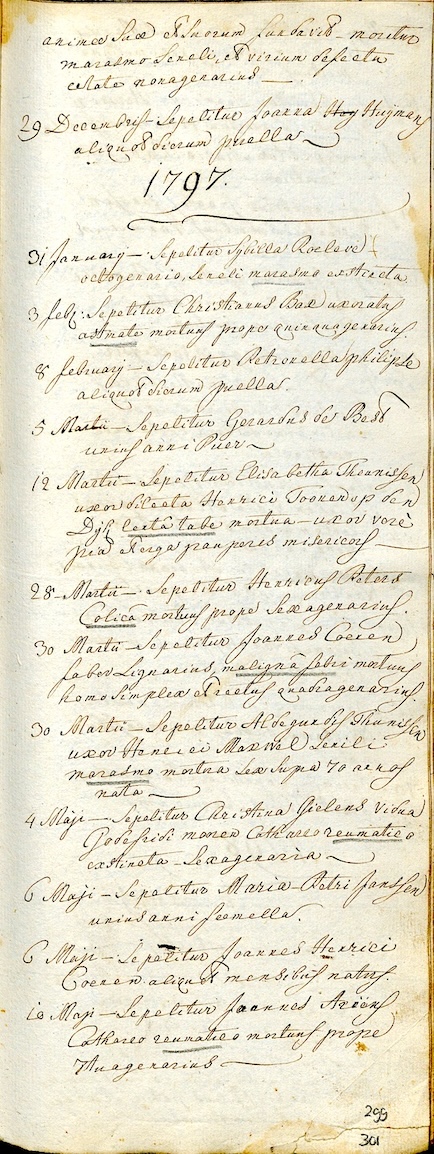 animæ suæ et suorum fundavit - moritur
marasmo senili, et virium defectu
ætate nonagenarius —
29 Decembris - Sepelitur Joanna Huijmans
aliquot dierum puella
1797.
31 January - Sepelitur Sybilla Roeleve
octogenaria, senili marasmo exstincta
3 feb: Sepelitur Christianus Bax uxoratus
astmate mortuus prope quinquagenarius
8 february - Sepelitur Petronella philipse
aliquot dierum puella.
5 Martii - Sepelitur Gerardus de Best
unius anni Puer
12 Martii - Sepelitur Elisabetha Theunissen
uxor dilecta Henrici Toonen op den
Dijk lentâ tabe mortua - uxor verè
pia et erga pauperes misericors —
28 - Martii - Sepelitur Henricus Peters
Colicâ mortuus prope Sexagenarius.
30 Martii - Sepelitur Joannes Coenen
faber Lignarius, malignâ febri mortuus
homo simplex et rectus quadragenarius.
30 Martii - Sepelitur Aldegundis Thunissen
uxor Henrici Maxwel senili
marasmo mortua sex supra 70 annos
nata —
4 Maji - Sepelitur Christina Gielens vidua
Godefridi monen Catharro reumatico
exstincta - Sexagenaria
6 Maji - Sepelitur Maria - Petri Janssen
unius anni foemella.
6 Maji - Sepelitur Joannes Henrici
Coenen aliquot mensibus natus.
10 Maji - Sepelitur Joannes Ariens
Catharro reumatico mortuus prope
7tuagenarius —
299
301